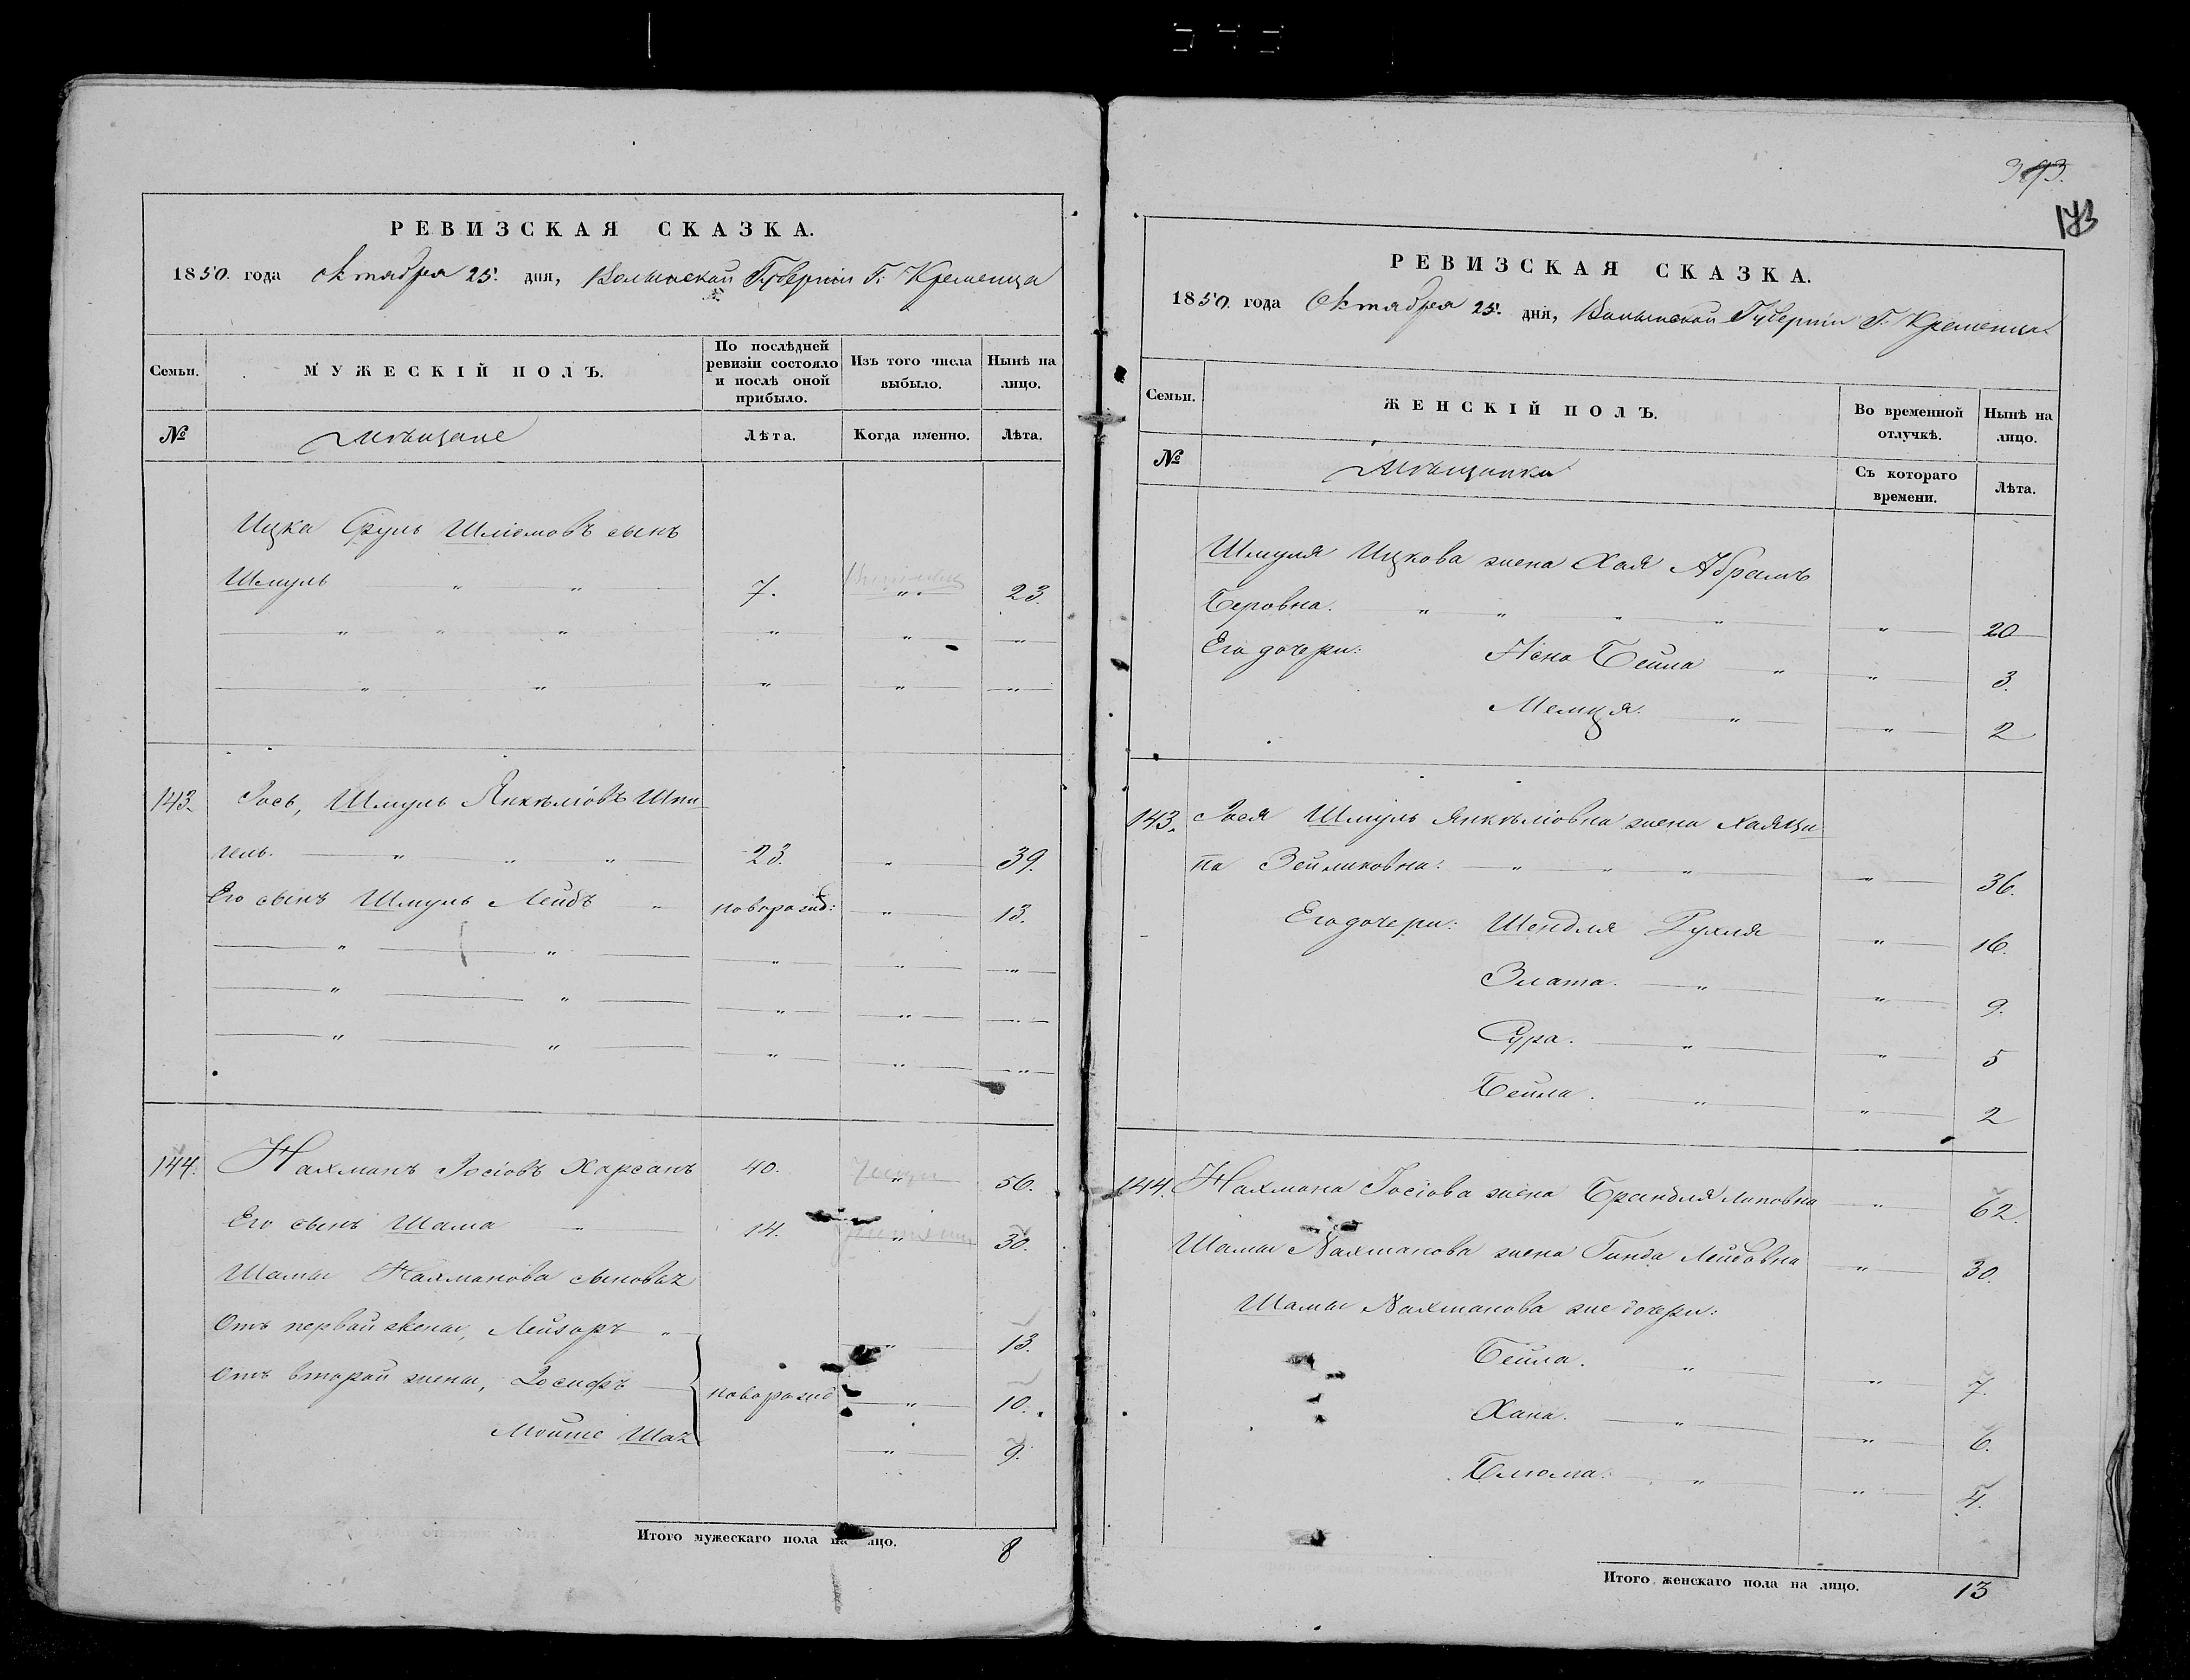 РЕВИЗСКАЯ СКАЗКА.
1850. года Октября 25. дня, Волынской Губерніи Г. Кременца
Семьи. МУЖЕСКІЙ ПОЛЪ. По послѣдней ревизіи состояло и послѣ оной прибыло. Изъ того числа выбыло. Нынѣ на лицо.
№ Мѣщане Лѣта. Когда именно. Лѣта.
Ицка Сруль Шліомовъ сынъ
Шмуль 7. 23.
143. Іось, Шмуль Янкѣліовъ Шпи-
гель. 23. 39.
Его сынъ Шмуль Лейбъ новорожд: 13.
144. Нахманъ Іосіовъ Харсанъ 40. 56.
Его сынъ Шама 14. 30.
Шамы Нахманова сыновья
Отъ первой жены, Лейзоръ 13.
Отъ второй жены, Іосифъ новорожд 10.
Мойше 9.
Итого мужескаго пола на лицо. 8
393.
173
РЕВИЗСКАЯ СКАЗКА.
1850. года Октября 25. дня, Волынской Губерніи Г. Кременца
Семьи. ЖЕНСКІЙ ПОЛЪ. Во временной отлучкѣ. Нынѣ на лицо.
№ Мѣщанки Съ котораго времени. Лѣта.
Шмуля Ицкова жена Хая Абрамъ
Беровна. 20
Его дочери: Бейла 3.
2
143. Іося Шмуль Янкѣліовна жена Хаяци
па Зейликовна: 36.
Его дочери: Шендля Рухля 16.
Злата. 9.
Сура. 5
Бейла. 2
144. Нахмана Іосіова жена Брандля Липовна 62.
Шамы Нахманова жена Гинда Лейбовна 30.
Шамы Нахманова же дочери:
Бейла. 7.
Хана. 6.
Блюма. 4.
Итого женскаго пола на лицо. 13